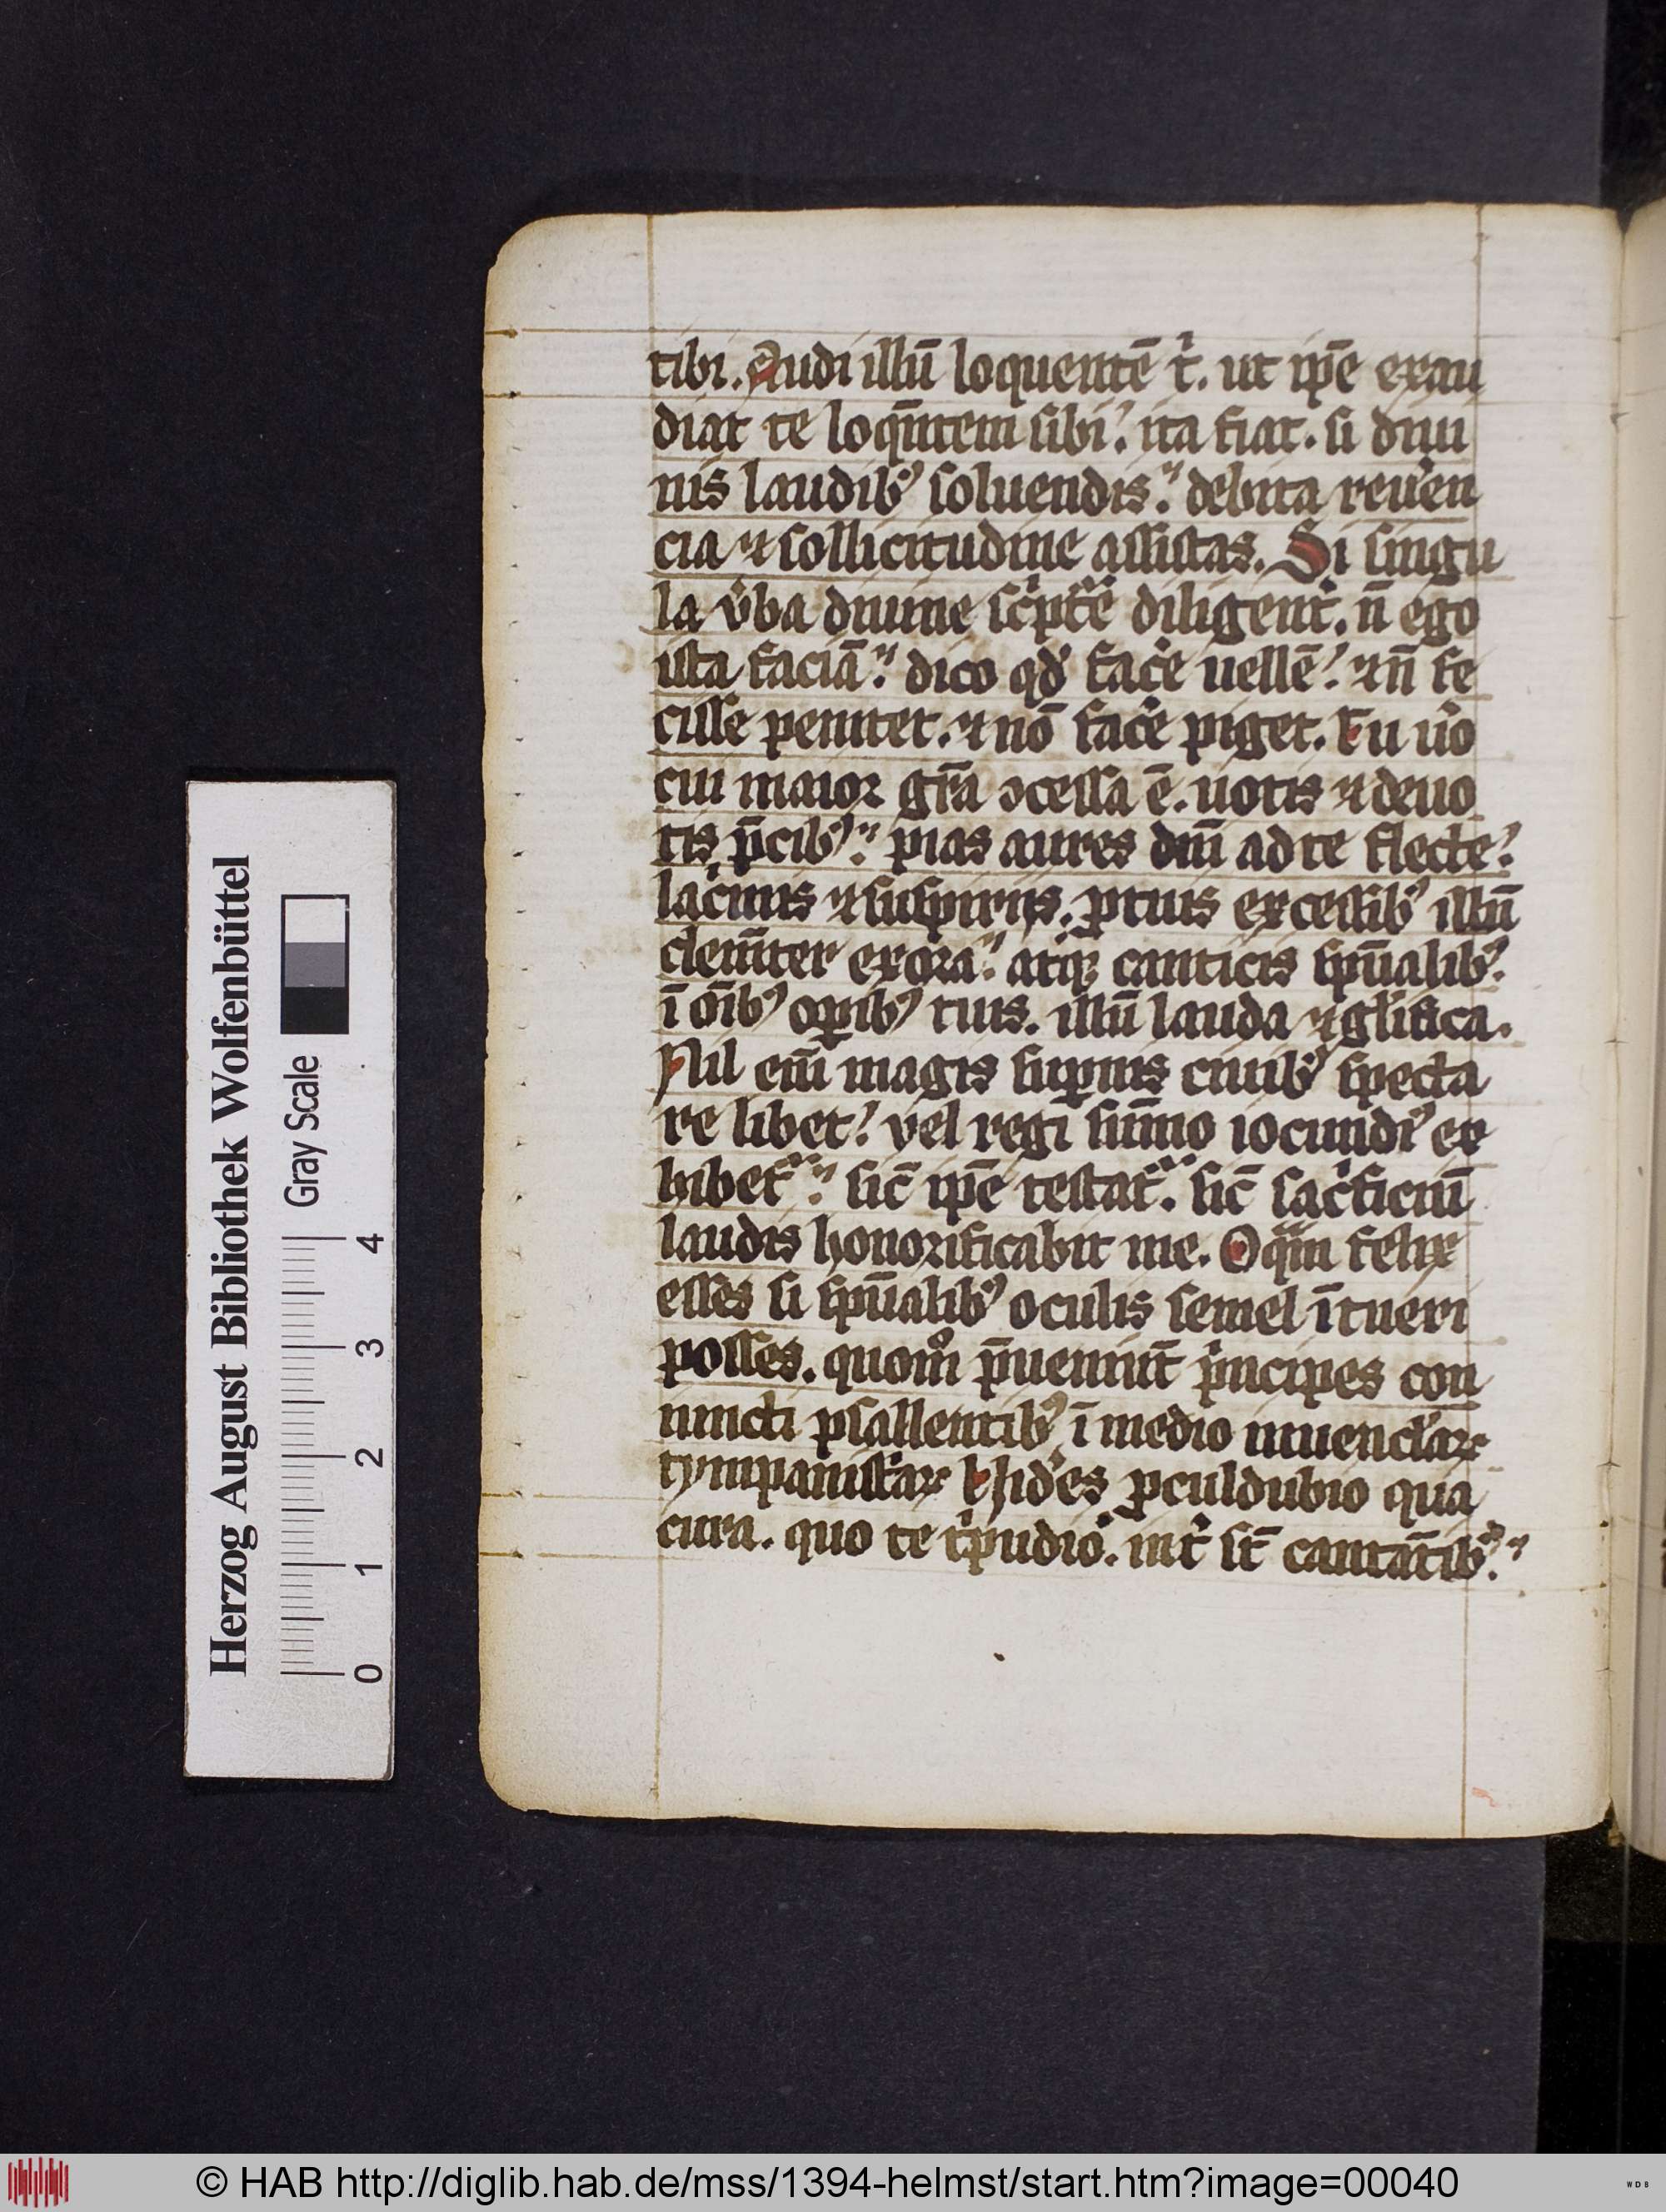 tibi. Audi illū loquentē t͛. ut ip̄e exau
diat te loq̄ntem sibi. ita fiat. si diui
nis laudibꝰ soluendis. debita reu͛en
cia ⁊ sollicitudine assistas. Si singu
la v͛ba diuine sc͛pt͛e diligent͛. n̄ ego
ista faciā. dico qd̕ fac͛e uellē. ⁊ n̄ fe
cisse penitet. ⁊ nō fac͛e piget. Tu u͛o
cui maior gr̄a ꝯcessa ē. uotis ⁊ deuo
tis p̄cibꝰ. pias aures dn̄i ad te flecte.
lac͛mis ⁊ suspiriis. ꝓ tuis excessibꝰ illū
clem̄ter exora. atqꝫ canticis sp̄ualibꝰ.
ī oī̄bꝰ oꝑibꝰ tuis. illū lauda ⁊ gl̄ifica.
Nil eni̅ magis suꝑnis ciuibꝰ specta
re libet. vel regi sūmo iocundiꝰ ex
hibet᷑. sic̄ ip̄e testat᷑. sic̄ sac͛ficiū
laudis honorificabit me. O qᷓm felix
esses si sp̄ualibꝰ oculis semel ītueri
posses. quomͦ p̄ueniūt p͛ncipes con
iuncti psallentibꝰ ī medio iuuencl̕aꝝ
tympanist͛aꝝ Uid͛es ꝓculdubio qua
cura. quo te t͛pudio. int͛ sit̄ cantātibꝰ.
Herzog August Bibliothek Wolfenbüttel
Gray Scale
0 1 2 3 4
© HAB http://diglib.hab.de/mss/1394-helmst/start.htm?image=00040
WDB